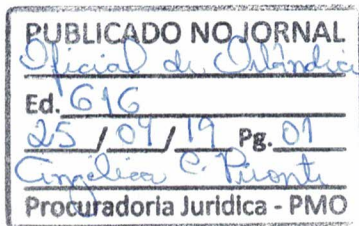 PUBLICADO NO JORNAL
Oficial de Orlândia
Ed. 616
25 / 07 / 19 Pg. 01
Angélica C. Pironti
Procuradoria Juridica - PMO